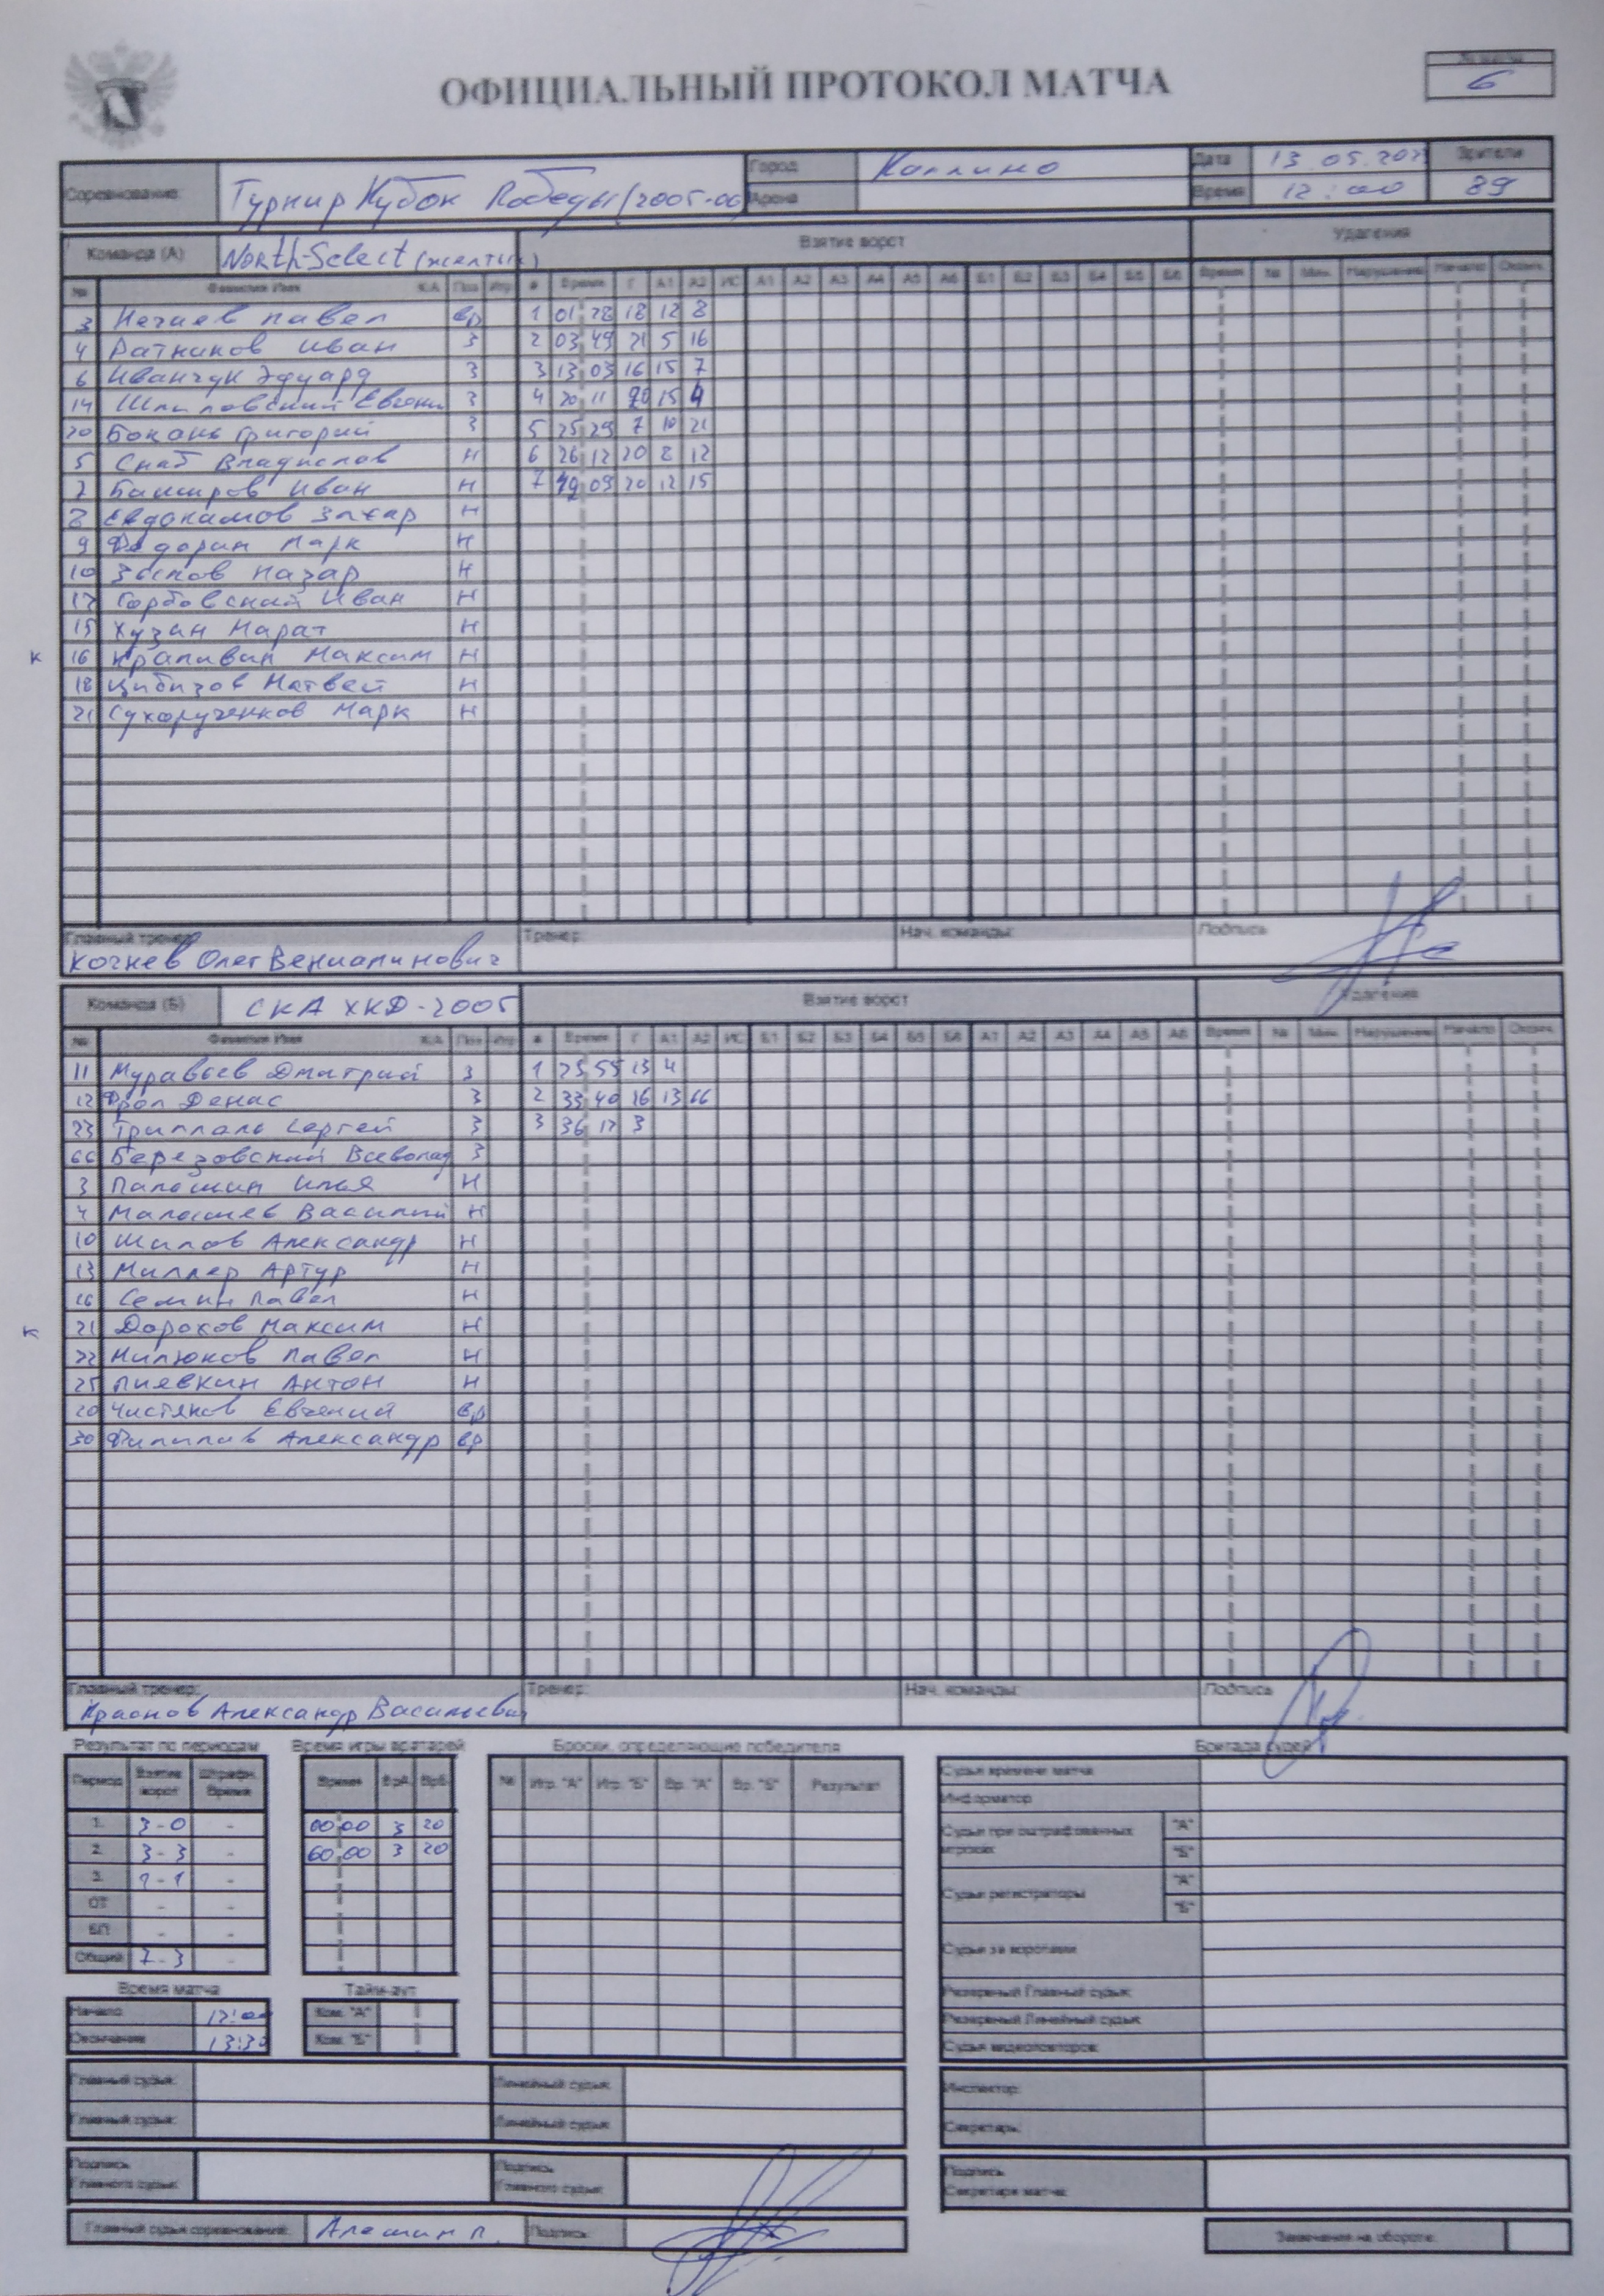 ОФИЦИАЛЬНЫЙ ПРОТОКОЛ МАТЧА
6
Соревнование: Турнир Кубок Победы (2005-06) Город Колпино Дата 13.05.202 Зрители
Арена Время 12:00 89
Команда (А) North-Select (желтые) Взятие ворот Удаления
№ Фамилия Имя К/А Поз Игр # Время Г А1 А2 ИС А1 А2 А3 А4 А5 А6 Б1 Б2 Б3 Б4 Б5 Б6 Время № Мин. Нарушение Начало Оконч.
3 Нечаев Павел Вр 1 01 28 18 12 8
4 Ратников Иван З 2 03 49 21 5 16
6 Иванчук Эдуард З 3 13 03 16 15 7
14 Шпиловский Евгени З 4 20 11 20 15 4
20 Бокань Григорий З 5 25 29 7 10 21
5 Снаб Владислав Н 6 26 12 20 8 12
7 Баширов Иван Н 7 49 09 20 12 15
8 Евдокимов Захар Н
9 Федорин Марк Н
10 Зыков Назар Н
12 Горбовский Иван Н
15 Хузин Марат Н
к 16 Крапивин Максим Н
18 Цибизов Матвей Н
21 Сухорученков Марк Н
Главный тренер: Тренер: Нач. команды: Подпись
Кочнев Олег Вениаминович
Команда (Б) СКА ХКД-2005 Взятие ворот Удаления
№ Фамилия Имя К/А Поз Игр # Время Г А1 А2 ИС Б1 Б2 Б3 Б4 Б5 Б6 А1 А2 А3 А4 А5 А6 Время № Мин. Нарушение Начало Оконч.
11 Муравьев Дмитрий З 1 25 55 13 4
12 Фрол Денис З 2 33 40 16 13 66
23 Гриллаль Сергей З 3 36 17 3
66 Березовский Всеволод З
3 Палошин Илья Н
4 Малышев Василий Н
10 Шилов Александр Н
13 Миллер Артур Н
16 Семин Павел Н
к 21 Дорохов Максим Н
22 Милюков Павел Н
25 Пиявкин Антон Н
20 Чистяков Евгений Вр
30 Филиппов Александр Вр
Главный тренер: Тренер: Нач. команды: Подпись
Краснов Александр Васильевич
Результат по периодам Время игры вратарей Броски, определяющие победителя Бригада судей
Период Взятие ворот Штрафн. Время Время ВрА ВрБ № Игр. "А" Игр. "Б" Вр. "А" Вр. "Б" Результат Судья времени матча
Информатор
1. 3-0 - 00 00 3 20 Судьи при оштрафованных игроках "А"
2. 3-3 - 60 00 3 20 "Б"
3. 1-1 - Судьи регистраторы "А"
ОТ - - "Б"
БП - - Судьи за воротами
Общий 7-3 -
Время матча Тайм-аут Резервный Главный судья:
Начало 12:00 Ком. "А" Резервный Линейный судья:
Окончание 13:30 Ком. "Б" Судья видеоповторов
Главный судья: Линейный судья: Инспектор:
Главный судья: Линейный судья: Секретарь:
Подпись Главного судьи: Подпись Главного судьи: Подпись Секретаря матча:
Главный судья соревнований: Алешин П. Подпись: Замечания на обороте: